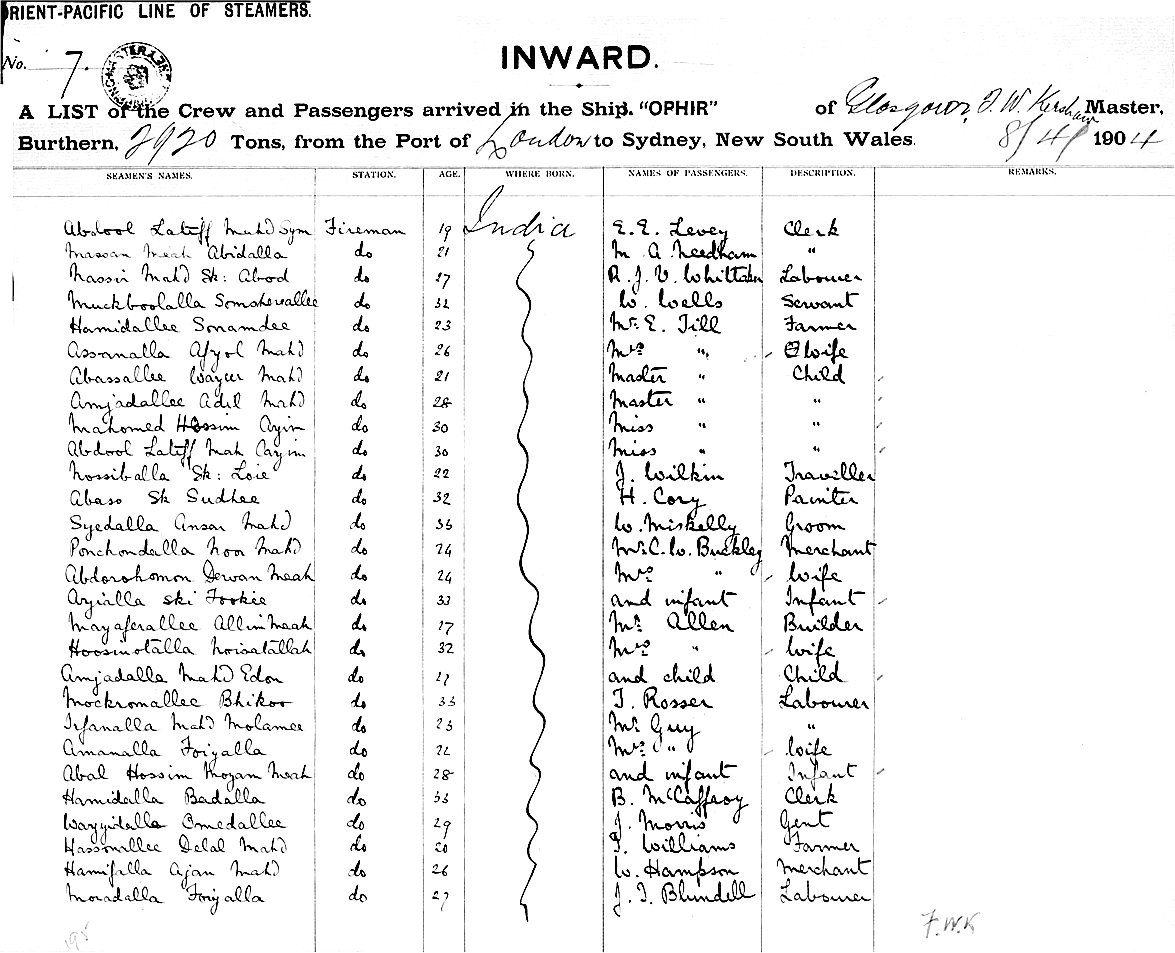 ORIENT-PACIFIC LINE OF STEAMERS.
No. 7.
INWARD.
A LIST of the Crew and Passengers arrived in the Ship. "OPHIR" of Glasgow, F. W. Kershaw Master,
Burthern, 2920 Tons, from the Port of London to Sydney, New South Wales. 8/4/ 1904
SEAMEN'S NAMES. STATION. AGE. WHERE BORN. NAMES OF PASSENGERS. DESCRIPTION. REMARKS.
Abdool Latiff Mahd Fireman 19 India E. E. Levey Clerk
Massan Meah Abidalla do 21 M A Needham "
Nassir Mahd Sk: Abod do 27 R. J. V. Whittaker Labourer
Muckboolalla Somsherallee do 32 W. Wells Servant
Hamidallee Sonamdee do 23 Mr. E. Till Farmer
Assanalla Afyol Mahd do 26 Mrs " wife
Abassallee Mahd do 21 Master " Child
Amjadallee Adil Mahd do 28 Master " "
Mahomed Hossim Ayim do 30 Miss " "
Abdool Latiff Mah do 30 Miss "
Nossiballa Sk: Loie do 22 J. Wilkin Traveller
Abaso Sk Sudhee do 32 H. Cory Painter
Syedalla Ansar Mahd do 35 W. Miskelly Groom
Ponchondalla Noor Mahd do 24 Mr. C. W. Buckley Merchant
Abdorohomon Dewan Meah do 24 Mrs " wife
Ayialla Fookie do 33 and infant Infant
Mayaferallee Allim Meah do 27 Mr Allen Builder
Hoosinotalla Noisatallah do 32 Mrs " wife
Amjadalla Mahd Edon do 27 and child Child
Mockromallee Bhikoo do 33 T. Rosser Labourer
Irfanalla Mahd Molamee do 23 Mr Guy "
Amanalla Foiyalla do 22 Mrs " wife
Abal Hossim Mozam Meah do 28 and infant Infant
Hamidalla Badalla do 33 B. McCaffroy Clerk
Wayyidalla Omedallee do 29 J. Morris Gent
Hassonallee Delal Mahd do 20 F. Williams Farmer
Hamifalla Ajan Mahd do 26 W. Hampson Merchant
Moradalla Foiyalla do 27 J. T. Blundell Labourer
F.W.K